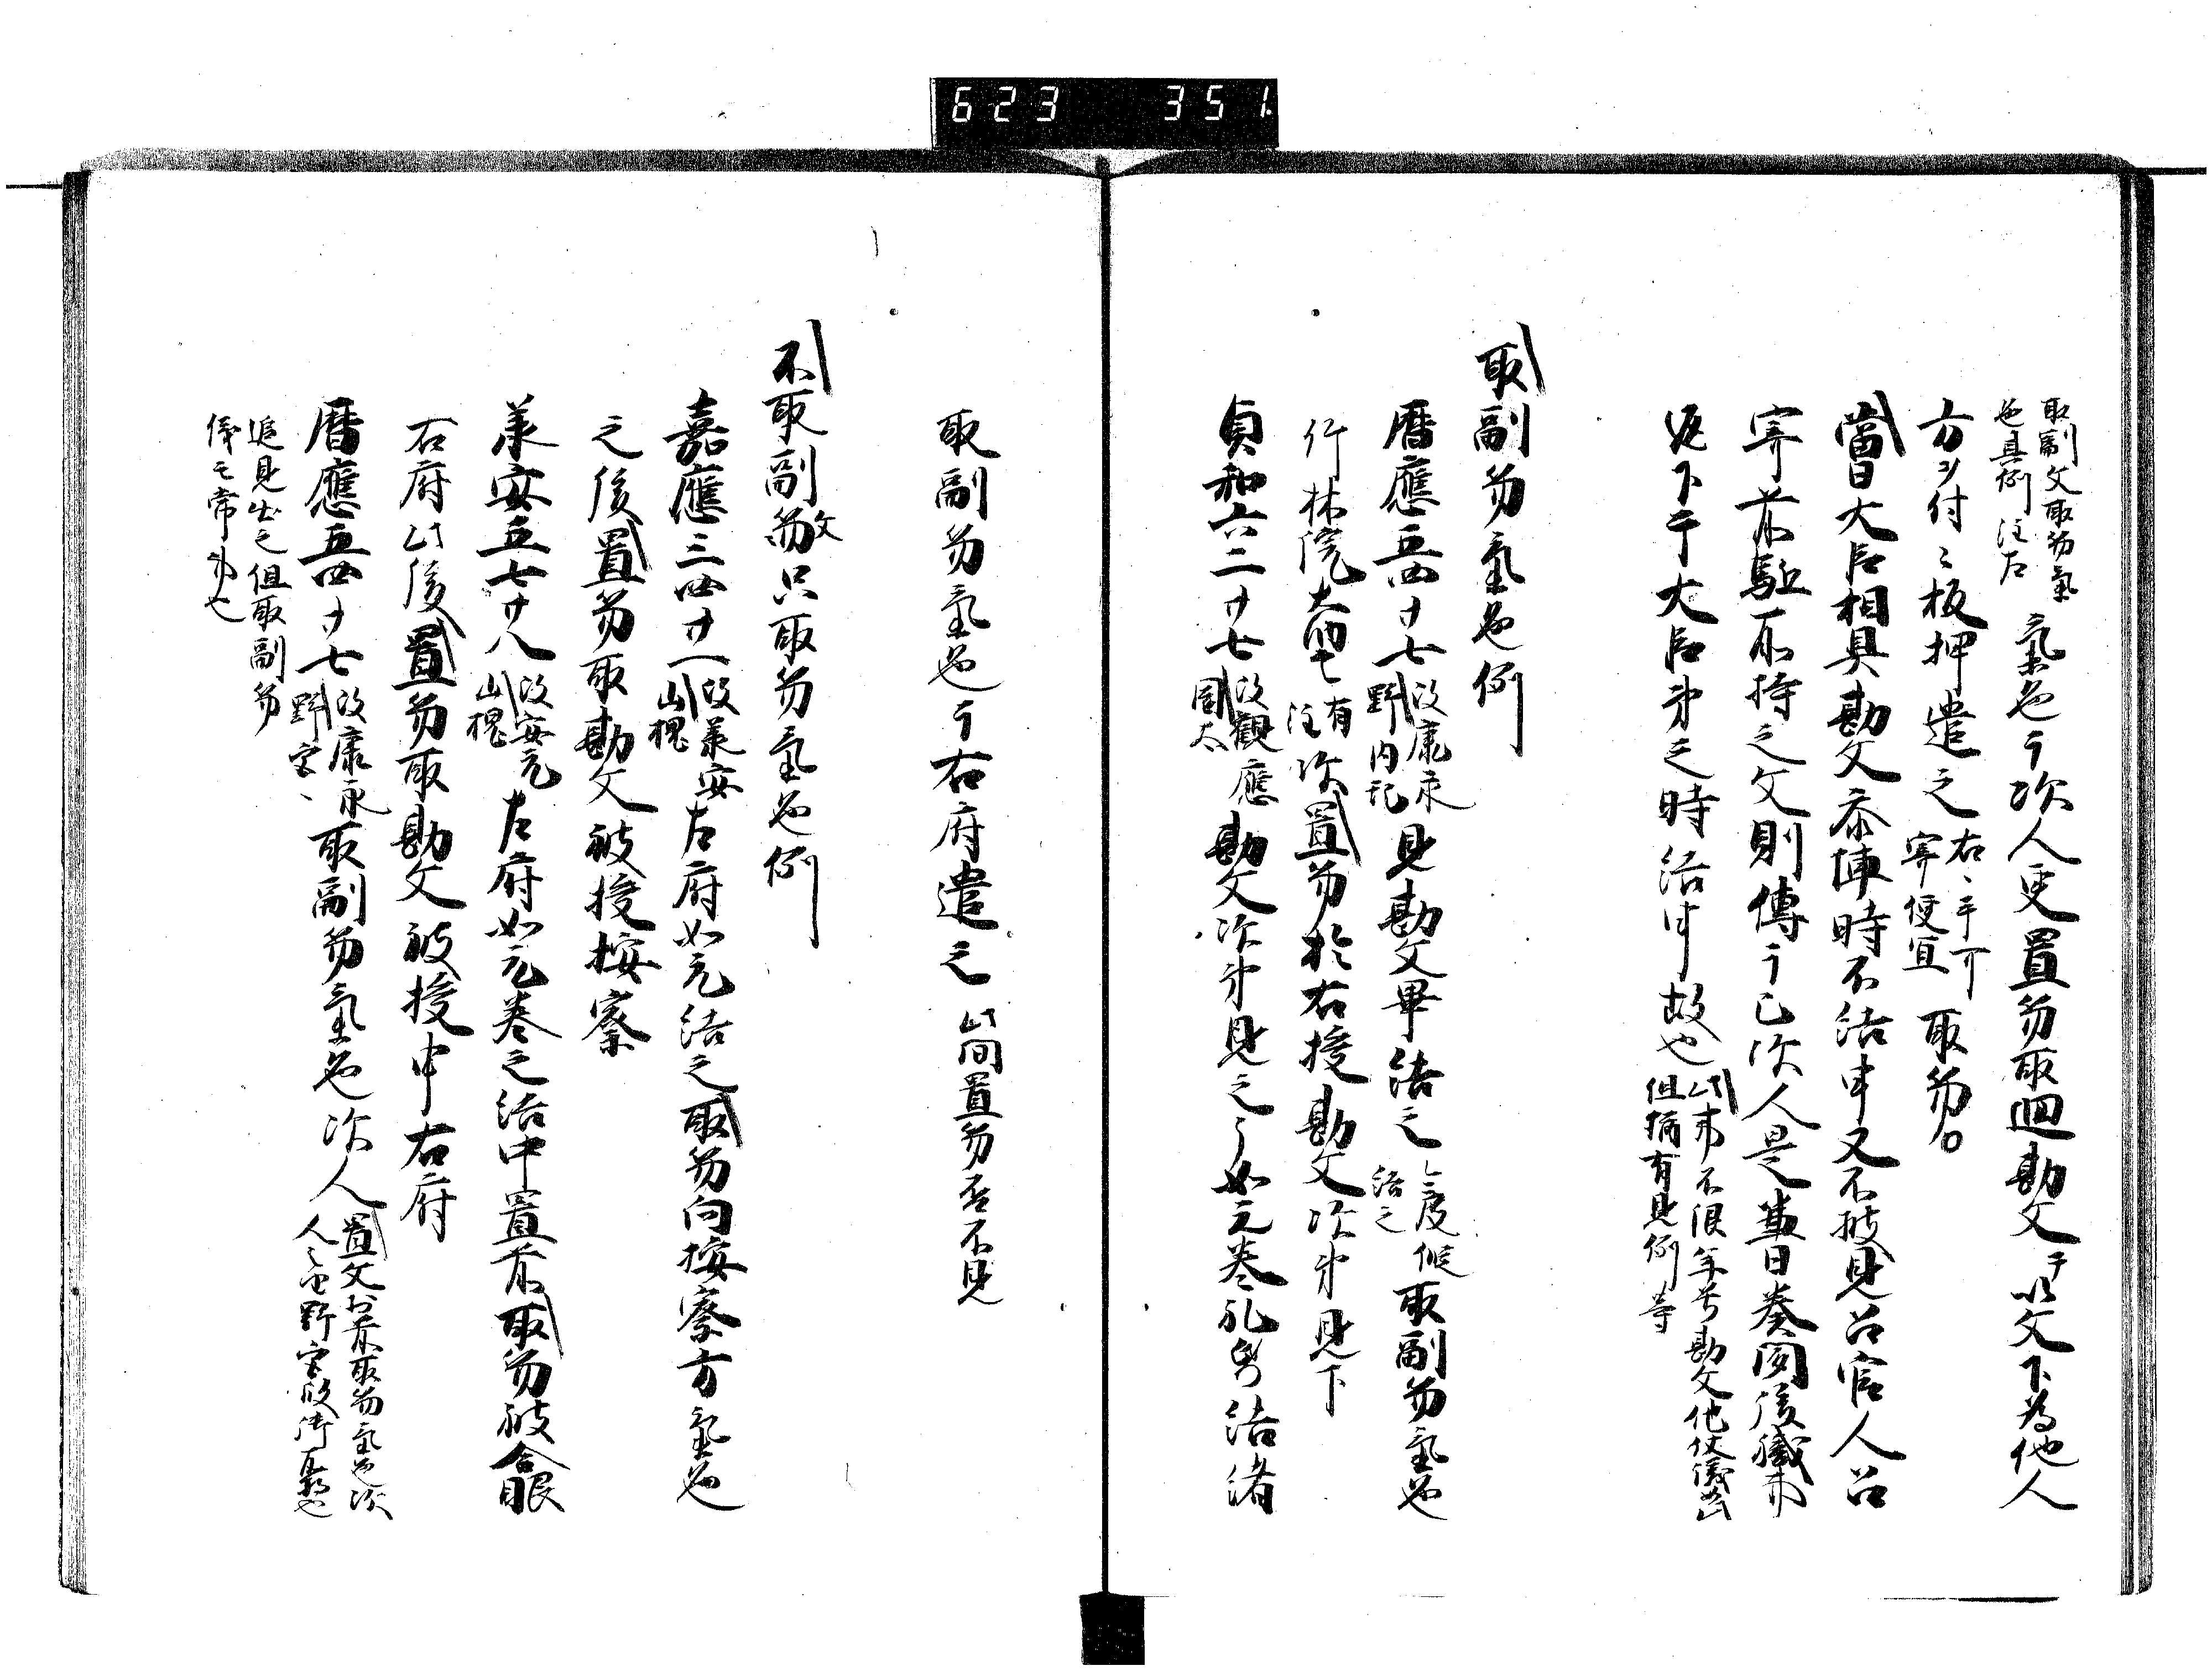 623 351
取副文取笏氣
色具例注左
氣色了次人更置笏取廻勘文テ以文下為他人
方ヲ付之板押遣之
右之手可
寄便宜
取笏
當日大臣相具勘文参陣時不結申又不披見召官人召
寄前駈所持之文則傳于已次人是兼日奏聞後職事
返下于大臣弟之時結申故也
此事不限年号勘文他仗儀
但猶有見例等
取副笏氣色例
暦應五四廿七
改康永
野内記
見勘文畢結之
結之
取副笏氣色
竹林院大納言
有
注
次置笏於右授勘文次第見下
貞和六二廿七
改觀應
園太
勘文次第見之了如元巻礼紙結緒
取副笏氣色了右府遣之
此間置笏否不見
不取副文笏只取笏氣色例
嘉應三四廿一
改承安
山槐
左府如元結之取笏向按察方氣色
之後置笏取勘文被授按察
承安五七廿八
改安元
山槐
左府如元巻之結申置前取笏被合眼
右府此後置笏取勘文被授申右府
暦應五四廿七
改康永
野宮
取副笏氣色次人
置文於前取笏氣色次
追見出之但取副笏